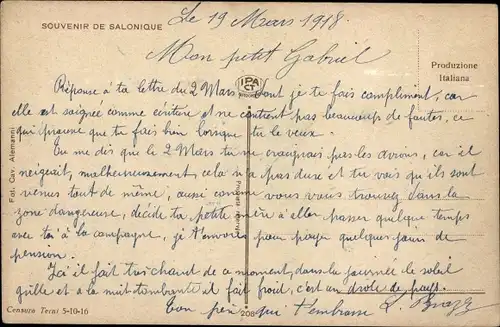 SOUVENIR DE SALONIQUE
Le 19 Mars 1918.
Mon petit Gabriel
Produzione
Italiana
IPA
CT
Réponse à ta lettre du 2 Mars dont je te fais compliment, car
elle est saignée comme écriture et ne contenant pas beaucoup de fautes, ce
qui prouve que tu fais bien lorsque tu le veux.
Tu me dis que le 2 Mars tu ne craignais pas les avions, car il
neigeait, malheureusement, cela n'a pas duré et tu vois qu'ils sont
venus tout de même, aussi comme vous vous trouvez dans la
zone dangereuse, décide ta petite mère à aller passer quelque temps
avec toi à la campagne, je t'envoies pour payer quelques jours de
pension.
Ici il fait très chaud de ce moment, dans la journée le soleil
grille et à la nuit tombante il fait froid, c'est un drôle de pays.
Ton père qui t'embrasse
Fot. Cav. Alemanni
Censura Terni 5-10-16
208